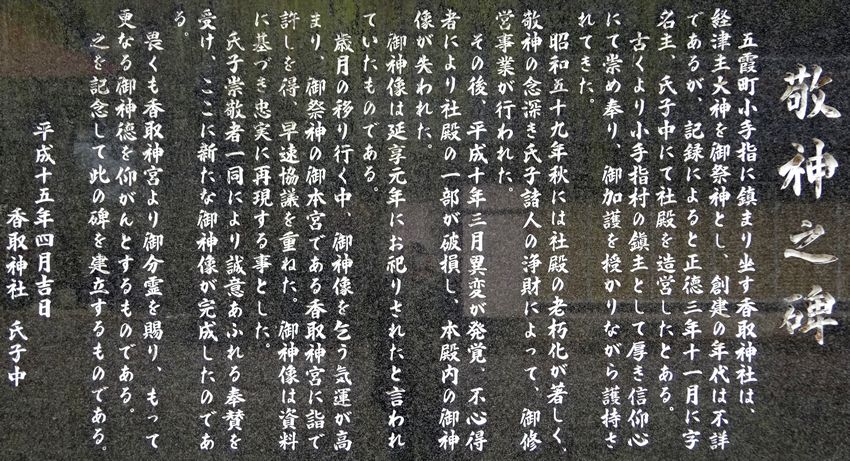 敬神之碑
五霞町小手指に鎮まり坐す香取神社は、
経津主大神を御祭神とし、創建の年代は不詳
であるが、記録によると正徳三年十一月に字
名主、氏子中にて社殿を造営したとある。
古くより小手指村の鎮主として厚き信仰心
にて崇め奉り、御加護を授かりながら護持さ
れてきた。
昭和五十九年秋には社殿の老朽化が著しく、
敬神の念深き氏子諸人の浄財によって、御修
営事業が行われた。
その後、平成十年三月異変が発覚、不心得
者により社殿の一部が破損し、本殿内の御神
像が失われた。
御神像は延享元年にお祀りされたと言われ
ていたものである。
歳月の移り行く中、御神像を乞う気運が高
まり、御祭神の御本宮である香取神宮に詣で
許しを得、早速協議を重ねた。御神像は資料
に基づき忠実に再現する事とした。
氏子崇敬者一同により誠意あふれる奉賛を
受け、ここに新たな御神像が完成したのであ
る。
畏くも香取神宮より御分霊を賜り、もって
更なる御神徳を仰がんとするものである。
之を記念して此の碑を建立するものである。
平成十五年四月吉日
香取神社 氏子中